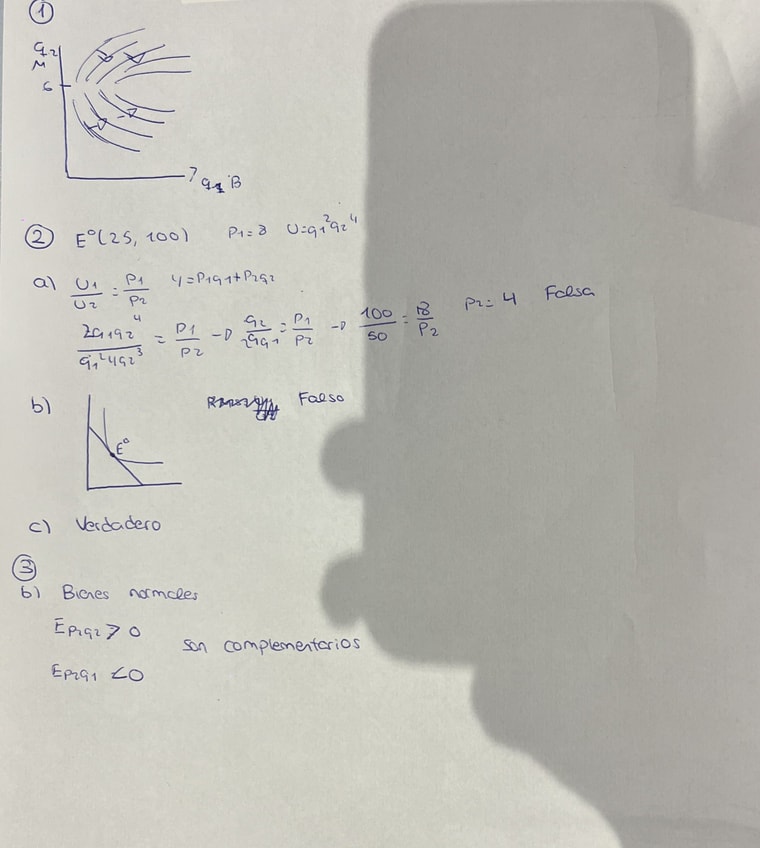 ①
q2
M
6
q1 B
② E⁰(25, 100) P1=8 U=q1²q2⁴
a) U1/U2 = P1/P2 Y=P1q1+P2q2
2q1q2⁴/q1²4q2³ = P1/P2 → q2/2q1 = P1/P2 → 100/50 = 8/P2 P2=4 Falsa
b) Falso
E⁰
c) Verdadero
③
b) Bienes normales
EP2q2 > 0
son complementarios
EP2q1 < 0